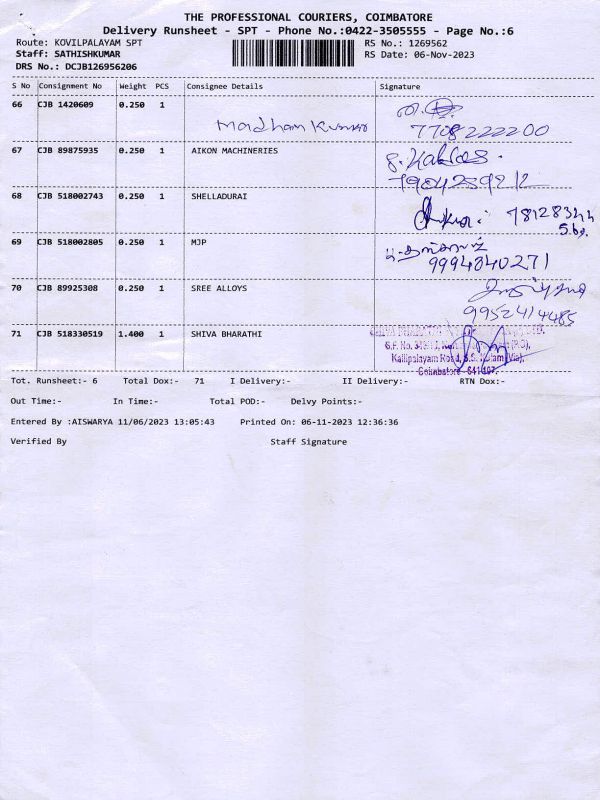 THE PROFESSIONAL COURIERS, COIMBATORE
Delivery Runsheet - SPT - Phone No.:0422-3505555 - Page No.:6
Route: KOVILPALAYAM SPT RS No.: 1269562
Staff: SATHISHKUMAR RS Date: 06-Nov-2023
DRS No.: DCJB126956206
S No Consignment No Weight PCS Consignee Details Signature
66 CJB 1420609 0.250 1
Madhan Kumar 7708222200
67 CJB 89875935 0.250 1 AIKON MACHINERIES
68 CJB 518002743 0.250 1 SHELLADURAI
69 CJB 518002805 0.250 1 MJP
9994840271
70 CJB 89925308 0.250 1 SREE ALLOYS
9952414485
71 CJB 518330519 1.400 1 SHIVA BHARATHI
Kallipalayam Road, S.S. Kulam (Via),
Coimbatore - 641 107.
Tot. Runsheet:- 6 Total Dox:- 71 I Delivery:- II Delivery:- RTN Dox:-
Out Time:- In Time:- Total POD:- Delvy Points:-
Entered By :AISWARYA 11/06/2023 13:05:43 Printed On: 06-11-2023 12:36:36
Verified By Staff Signature